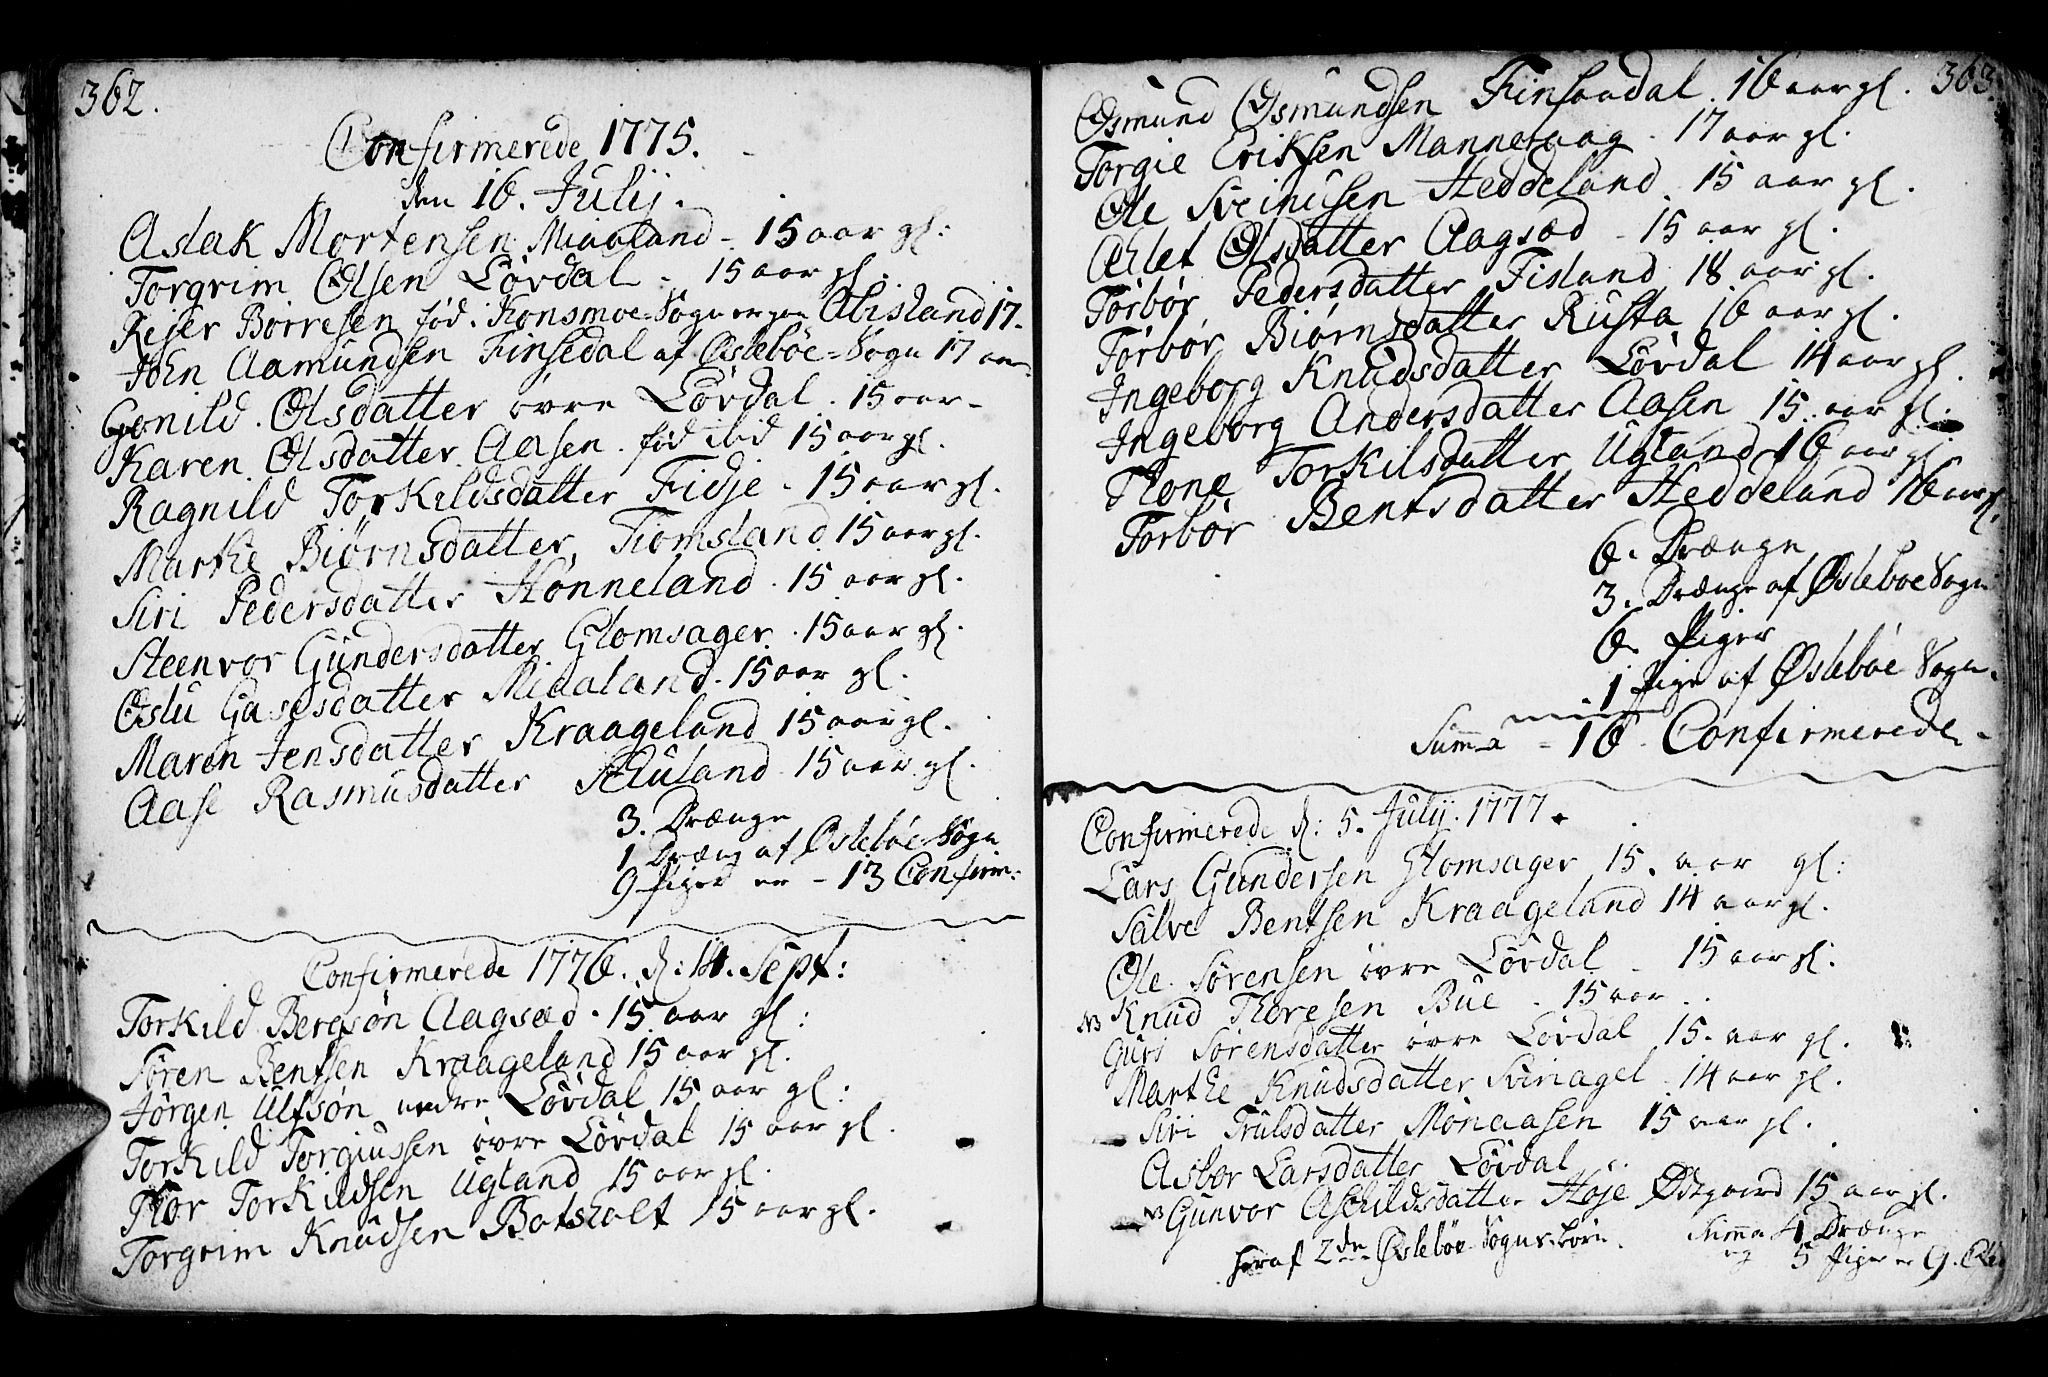 362.
Confirmerede 1775.
den 16. Julij.
Aslak Mortensen Miaaland - 15 aar gl:
Torgrim Olsen Lövdal - 15 aar gl.
Reier Börresen fød i Konsmoe-Sogn Abisland 17.
John Aamundsen Finsedal af Øslebøe-Sogn 17 aar
Gonild Olsdatter övre Lövdal. 15 aar-
Karen Olsdatter Aasen. fød ibid 15 aar gl.
Ragnild Torkildsdatter Fidje - 15 aar gl.
Marthe Biørnsdatter, Tiomsland 15 aar gl.
Siri Pedersdatter Hønneland. 15 aar gl.
Steenvor Gundersdatter Glomsager. 15 aar gl.
Oslu Gasesdatter Miaaland. 15 aar gl.
Maren Jensdatter Kraageland 15 aar gl.
Aase Rasmusdatter 15 aar gl.
3. Drænge
1 Dræng af Øslebøe Sogn
9 Piger er - 13 Confirm:
Confirmerede 1776. d: 14. Sept:
Torkild Bergsøn Aagsæd. 15 aar gl:
Søren Bentsen Kraageland 15 aar gl.
Jørgen Ulfsøn nedre Lövdal 15 aar gl:
Torkild Torgiussen övre Lövdal 15 aar gl.
Thor Torkildsen Ugland 15 aar gl.
Torgrim Knudsen Botsholt 15 aar gl.
363.
Osmund Osmundsen Finsaadal. 16 aar gl.
Torgie Eriksen Mannefaag. 17 aar gl.
Ole Sveinusen Heddeland. 15 aar gl.
Ellet Olsdatter Aagsæd - 15 aar gl.
Torbør Pedersdatter Fisland 18 aar gl.
Torbør Biørnsdatter Rusta 16 aar gl.
Ingeborg Knudsdatter Lövdal 14 aar gl.
Ingeborg Andersdatter Aasen 15 aar gl.
Thone Torkilsdatter Ugland 16 aar gl.
Torbør Bentsdatter Heddeland 16 aar gl.
6. Drænge
3. Drænge af Øslebøe Sogn
6. Piger
1 Pige af Øslebøe Sogn.
Summa - 16 Confirmerede.
Confirmerede d: 5. Julij. 1777.
Lars Gundersen Glomsager 15. aar gl:
Salve Bentsen Kraageland 14 aar gl.
Ole Sørensen övre Lövdal - 15 aar gl:
NB Knud Thoresen Bue. 15 aar..
Guri Sørensdatter övre Lövdal 15. aar gl.
Marthe Knudsdatter Svinagel. 14 aar gl.
Siri Trulsdatter Monaasen 15 aar gl.
Asbør Larsdatter Lövdal
NB Gunvor Aschildsdatter Høje Ødegaard 15 aar gl.
heraf 2de Øslebøe Sogns børn. Summa 4 Drænge
og 5 Piger er 9.